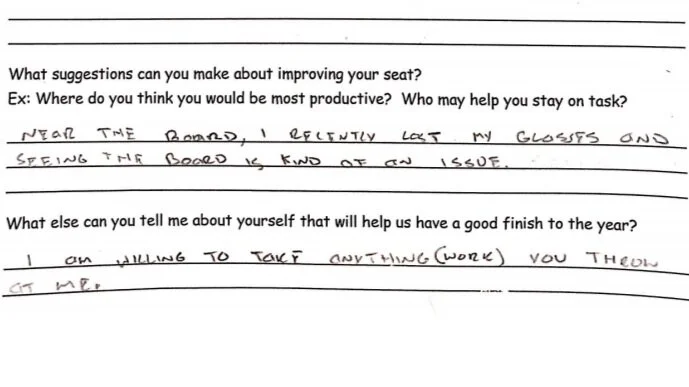 What suggestions can you make about improving your seat?
Ex: Where do you think you would be most productive? Who may help you stay on task?
NEAR THE BOARD, I RECENTLY LOST MY GLASSES AND
SEEING THE BOARD IS KIND OF AN ISSUE.
What else can you tell me about yourself that will help us have a good finish to the year?
I am WILLING TO TAKE ANYTHING (WORK) YOU THROW
AT ME.